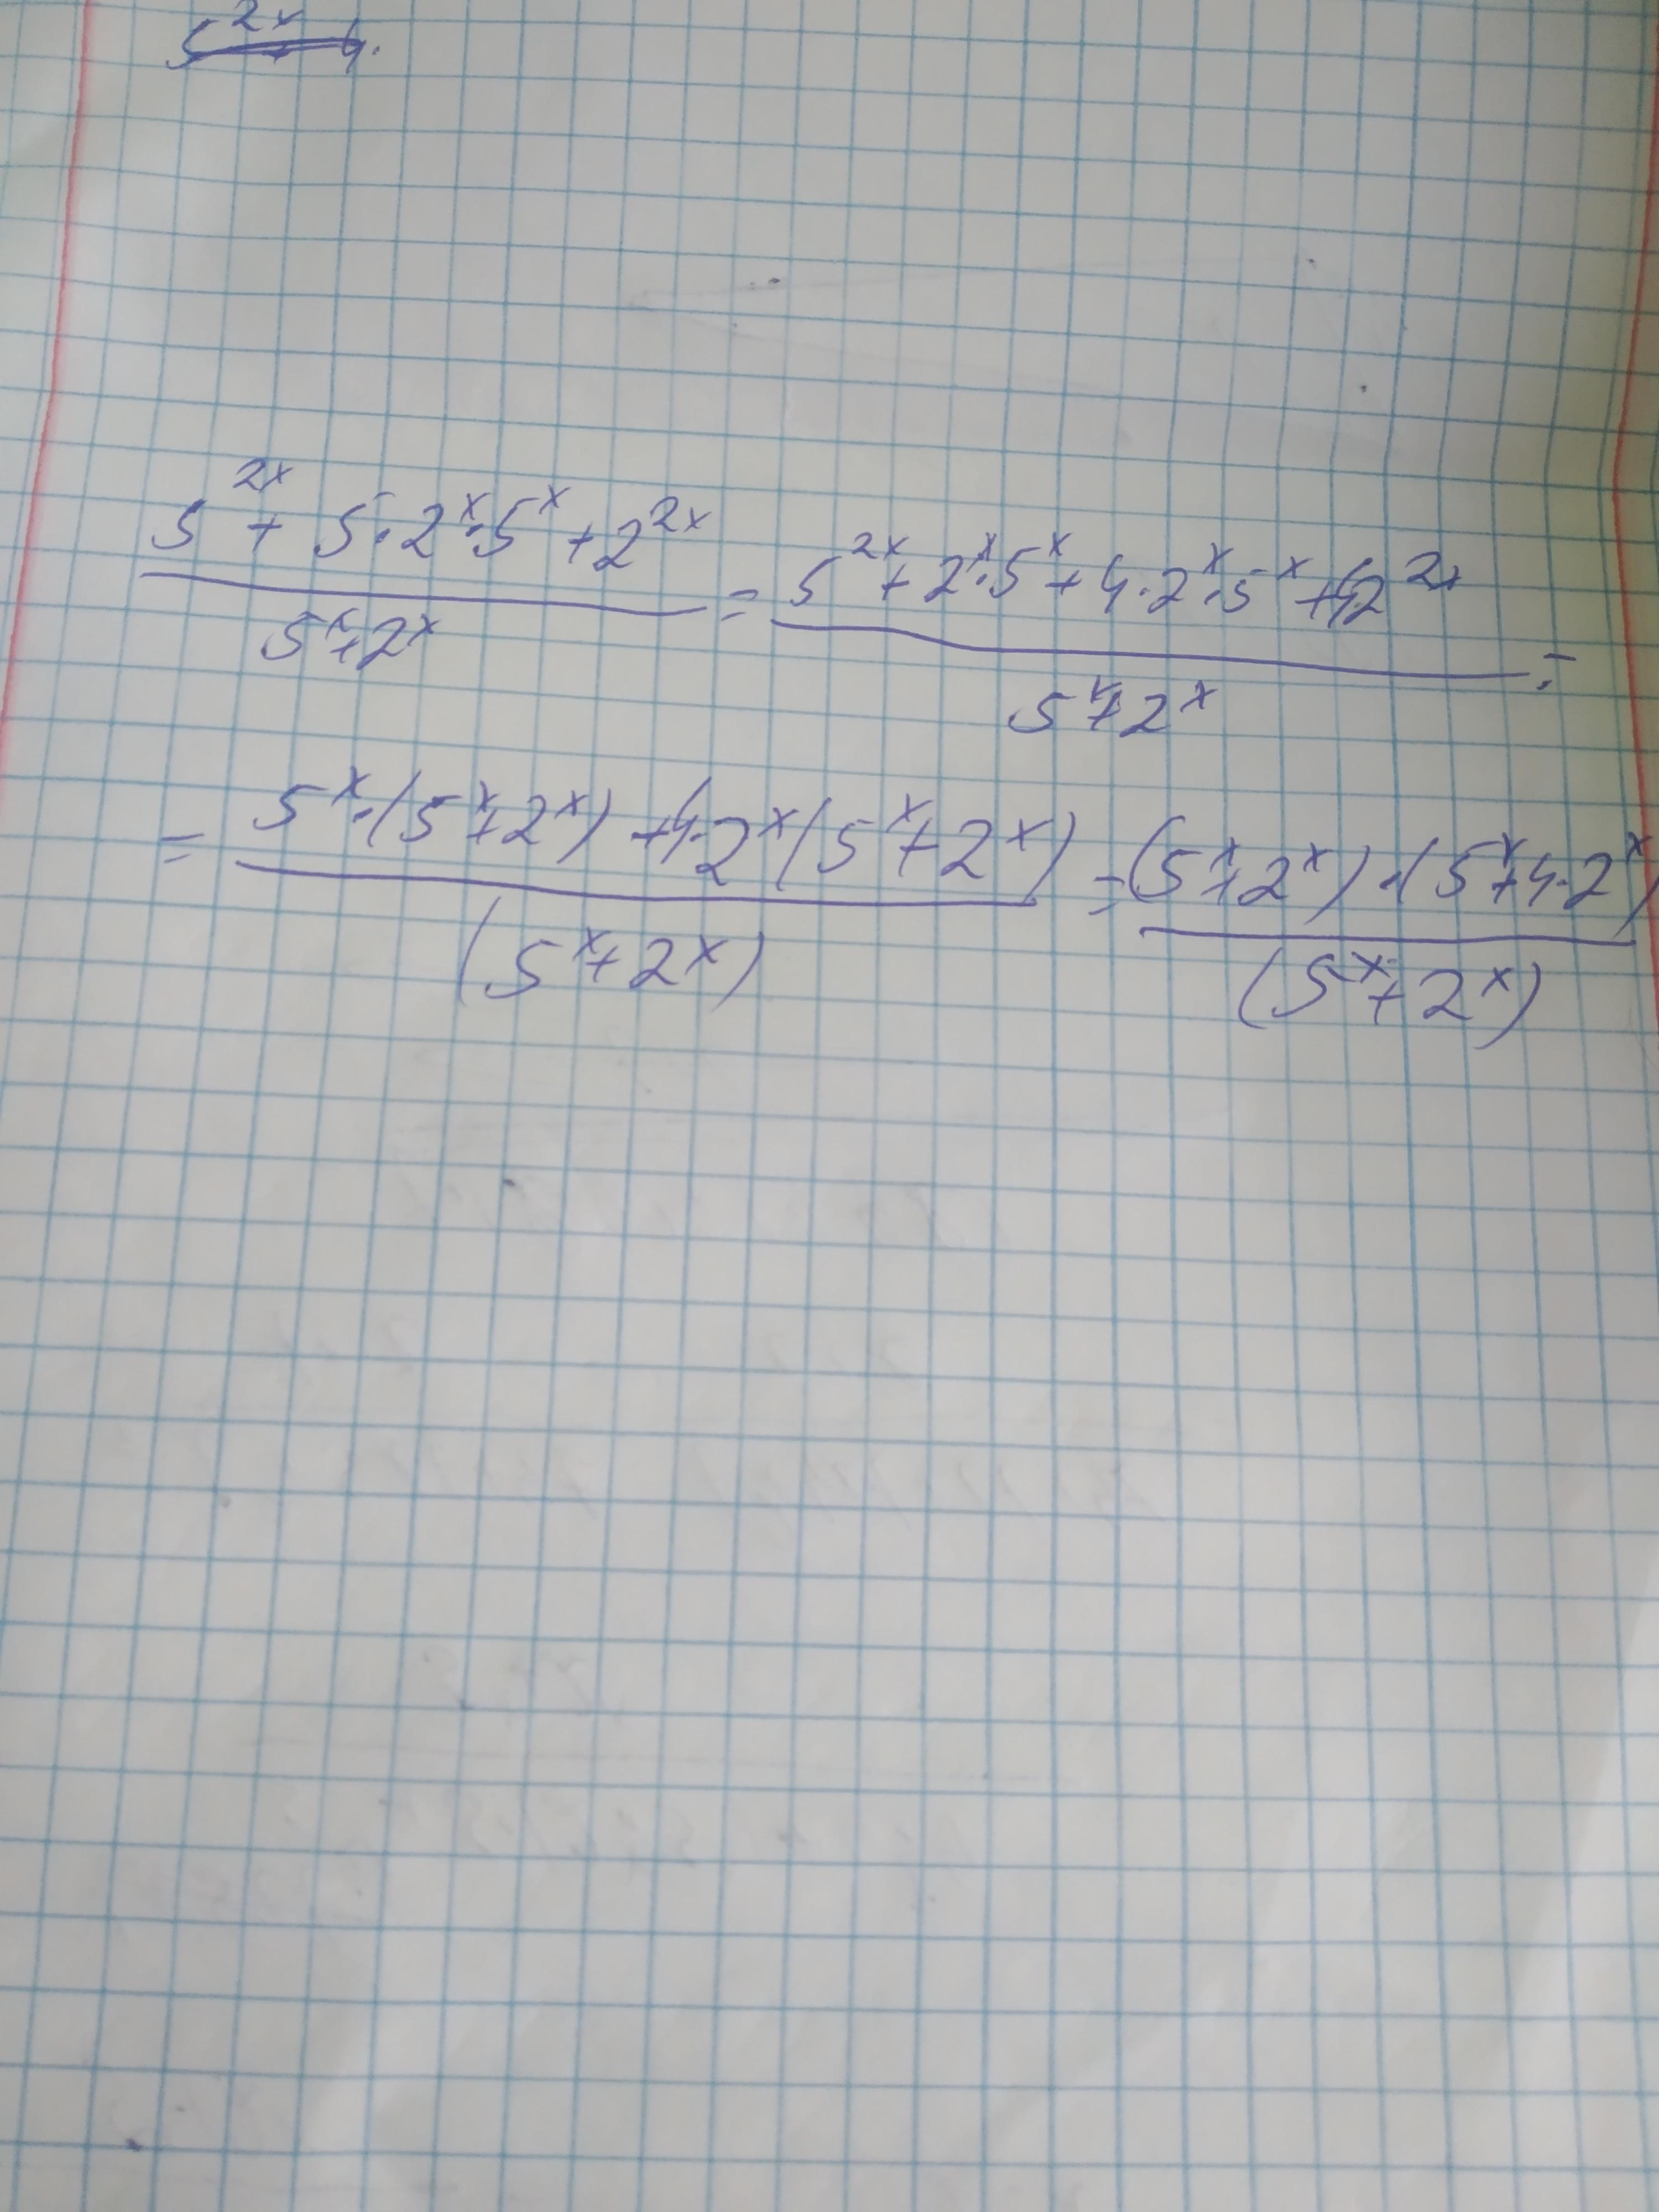 5^{2x} + 4.
\frac{5^{2x} + 5 \cdot 2^x \cdot 5^x + 2^{2x}}{5^x + 2^x} = \frac{5^{2x} + 2^x \cdot 5^x + 4 \cdot 2^x \cdot 5^x + 4 \cdot 2^{2x}}{5^x + 2^x} =
= \frac{5^x \cdot (5^x + 2^x) + 4 \cdot 2^x (5^x + 2^x)}{(5^x + 2^x)} = \frac{(5^x + 2^x) \cdot (5^x + 4 \cdot 2^x)}{(5^x + 2^x)}